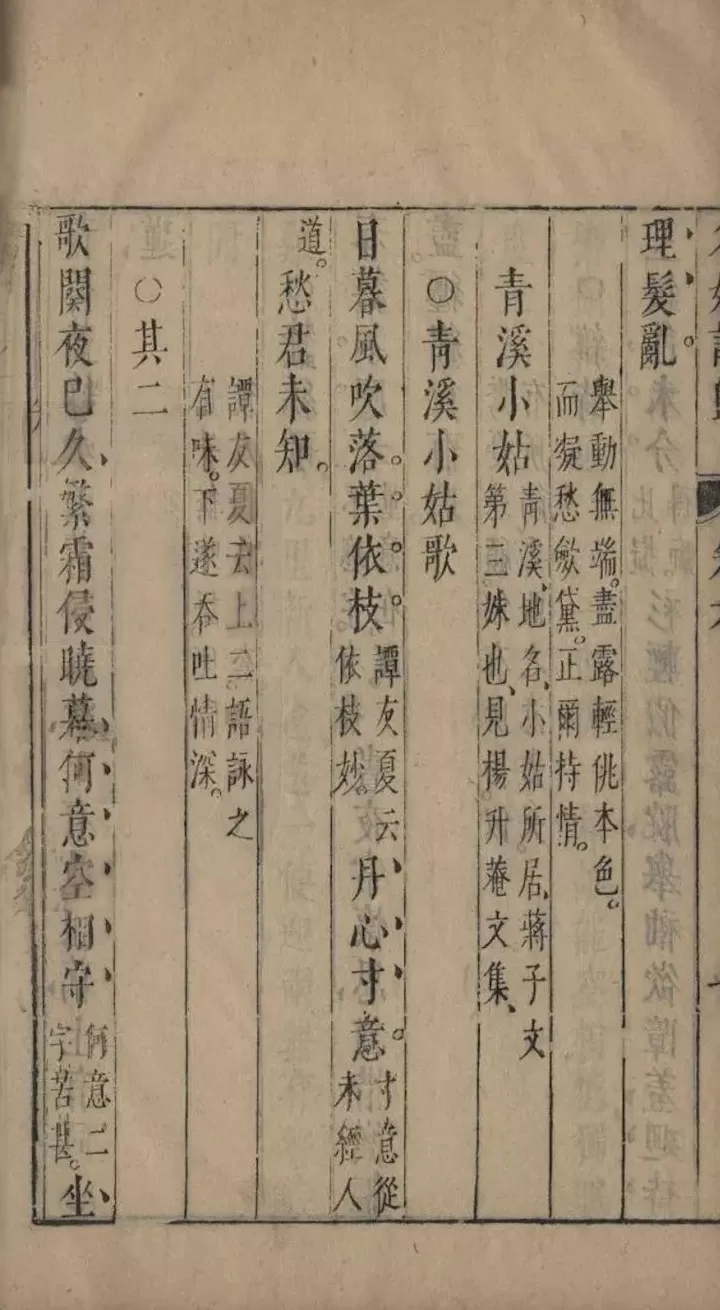 理髮亂。
舉動無端。盡露輕佻本色。
而凝愁歛黛。正爾持情。
青溪小姑
青溪、地名、小姑所居、蔣子文
第三妹也、見楊升菴文集、
○青溪小姑歌
日暮風吹落。葉。依。枝。
譚友夏云
依枝妙。
丹、心、寸、意。
寸意從
未經人
道。
愁君未知。
譚友夏云上二語詠之
有味。下遂吞吐情深。
○其二
歌闋夜已久、繁霜侵曉幕、何、意、空、相、守、
何意二
字苦甚。
坐、